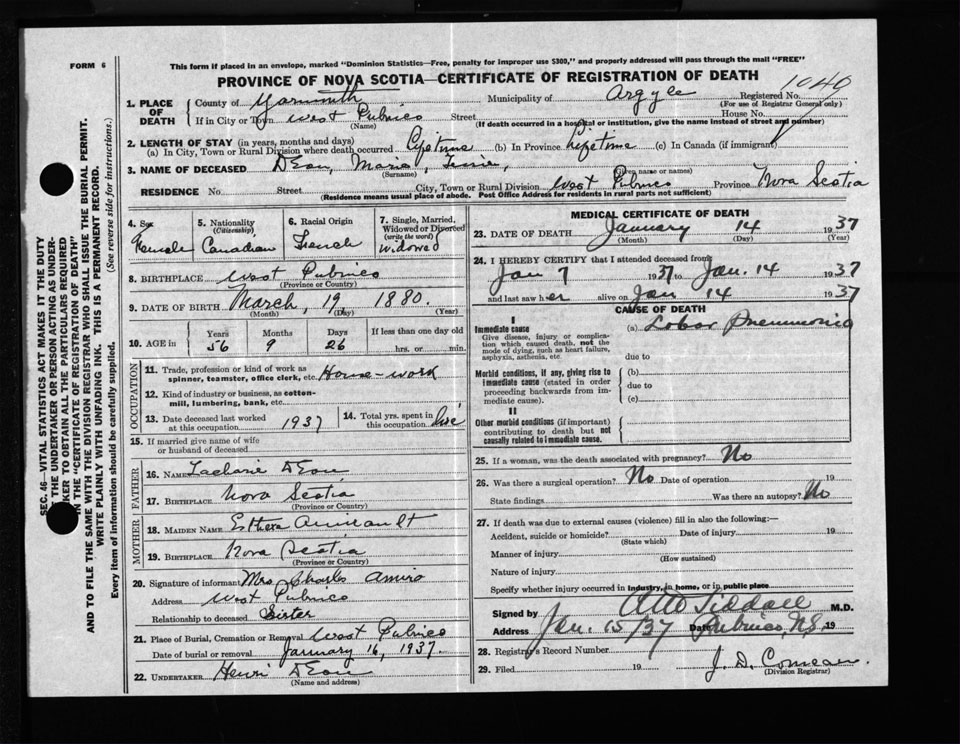 FORM 6
This form if placed in an envelope, marked "Dominion Statistics—Free, penalty for improper use $300," and properly addressed will pass through the mail "FREE"
PROVINCE OF NOVA SCOTIA—CERTIFICATE OF REGISTRATION OF DEATH
1. PLACE OF DEATH
County of Yarmouth Municipality of Argyle Registered No. 1040
(For use of Registrar General only)
If in City or Town West Pubnico Street House No.
(Name) (If death occurred in a hospital or institution, give the name instead of street and number)
2. LENGTH OF STAY (in years, months and days)
(a) In City, Town or Rural Division where death occurred Lifetime (b) In Province Lifetime (c) In Canada (if immigrant)
3. NAME OF DECEASED DEon, Marie
(Surname) (Given name or names)
RESIDENCE No. Street City, Town or Rural Division West Pubnico Province Nova Scotia
(Residence means usual place of abode. Post Office Address for residents in rural parts not sufficient)
4. Sex Female
5. Nationality (Citizenship) Canadian
6. Racial Origin French
7. Single, Married, Widowed or Divorced (write the word) Widowed
8. BIRTHPLACE West Pubnico
(Province or Country)
9. DATE OF BIRTH March, 19 1880.
(Month) (Day) (Year)
10. AGE in Years Months Days If less than one day old
56 9 26 hrs. or min.
OCCUPATION
11. Trade, profession or kind of work as spinner, teamster, office clerk, etc. House-work
12. Kind of industry or business, as cotton-mill, lumbering, bank, etc.
13. Date deceased last worked at this occupation 1937
14. Total yrs. spent in this occupation
15. If married give name of wife or husband of deceased
FATHER
16. NAME Zacharie DEon
17. BIRTHPLACE Nova Scotia
(Province or Country)
MOTHER
18. MAIDEN NAME Esther Amirault
19. BIRTHPLACE Nova Scotia
(Province or Country)
20. Signature of informant Mrs Charles Amiro
Address West Pubnico
Relationship to deceased Sister
21. Place of Burial, Cremation or Removal West Pubnico
Date of burial or removal January 16, 1937.
22. UNDERTAKER Henri DEon
(Name and address)
MEDICAL CERTIFICATE OF DEATH
23. DATE OF DEATH January 14 1937
(Month) (Day) (Year)
24. I HEREBY CERTIFY that I attended deceased from
Jan 7 1937 to Jan. 14 1937
and last saw her alive on Jan 14 1937
CAUSE OF DEATH
I
Immediate cause (a) Lobar Pneumonia
Give disease, injury or complication which caused death, not the mode of dying, such as heart failure, asphyxia, asthenia, etc.
due to
Morbid conditions, if any, giving rise to immediate cause (stated in order proceeding backwards from immediate cause).
(b)
due to
(c)
II
Other morbid conditions (if important) contributing to death but not causally related to immediate cause.
25. If a woman, was the death associated with pregnancy? No
26. Was there a surgical operation? No Date of operation 19
State findings Was there an autopsy? No
27. If death was due to external causes (violence) fill in also the following:—
Accident, suicide or homicide? Date of injury 19
(State which)
Manner of injury
(How sustained)
Nature of injury
Specify whether injury occurred in industry, in home, or in public place
Signed by M.D.
Address Pubnico, N.S. Date Jan. 15/37 19
28. Registrar's Record Number
29. Filed 19 J. D. Comeau.
(Division Registrar)
SEC. 46—VITAL STATISTICS ACT MAKES IT THE DUTY
OF THE UNDERTAKER OR PERSON ACTING AS UNDER-
TAKER TO OBTAIN ALL THE PARTICULARS REQUIRED
IN THE "CERTIFICATE OF REGISTRATION OF DEATH"
AND TO FILE THE SAME WITH THE DIVISION REGISTRAR WHO SHALL ISSUE THE BURIAL PERMIT.
WRITE PLAINLY WITH UNFADING INK. THIS IS A PERMANENT RECORD.
Every item of information should be carefully supplied. (See reverse side for instructions.)